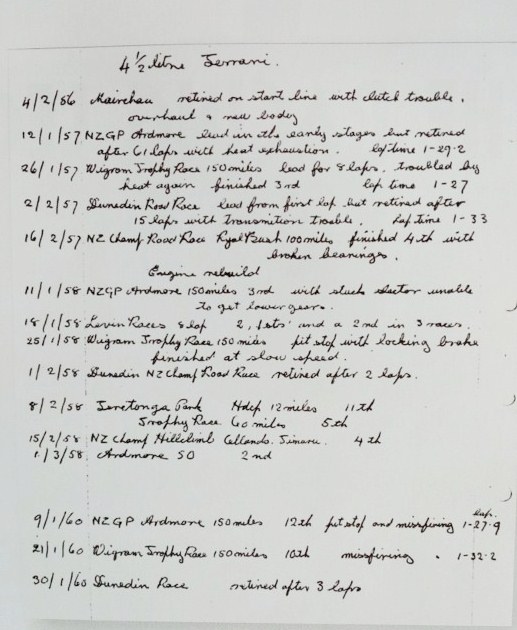 4 1/2 litre Ferrari.
4/2/56 Mairehau retired on start line with clutch trouble.
overhaul & new body
12/1/57 NZGP Ardmore lead in the early stages but retired
after 61 laps with heat exhaustion. lap time 1-27-2
26/1/57 Wigram Trophy Race 150 miles lead for 8 laps, troubled by
heat again finished 3rd lap time 1-27
2/2/57 Dunedin Road Race lead from first lap but retired after
15 laps with transmition trouble. Lap time 1-33
16/2/57 NZ Champ Road Race Ryal Bush 100 miles finished 4th with
broken bearings.
Engine rebuild
11/1/58 NZGP Ardmore 150 miles 3rd with stuck selector unable
to get lower gears.
18/1/58 Levin Races 8 lap 2, 1sts and a 2nd in 3 races.
25/1/58 Wigram Trophy Race 150 miles pit stop with locking brake
finished at slow speed.
1/2/58 Dunedin NZ Champ Road Race retired after 2 laps.
8/2/58 Teretonga Park Hdcp 12 miles 11th
Trophy Race 60 miles 5th
15/2/58 NZ Champ Hillclimb Timaru. 4th
1/3/58 Ardmore 50 2nd
Lap.
9/1/60 NZGP Ardmore 150 miles 12th pit stop and missfiring 1-27-9
21/1/60 Wigram Trophy Race 150 miles 10th missfiring . 1-32-2
30/1/60 Dunedin Race retired after 3 laps